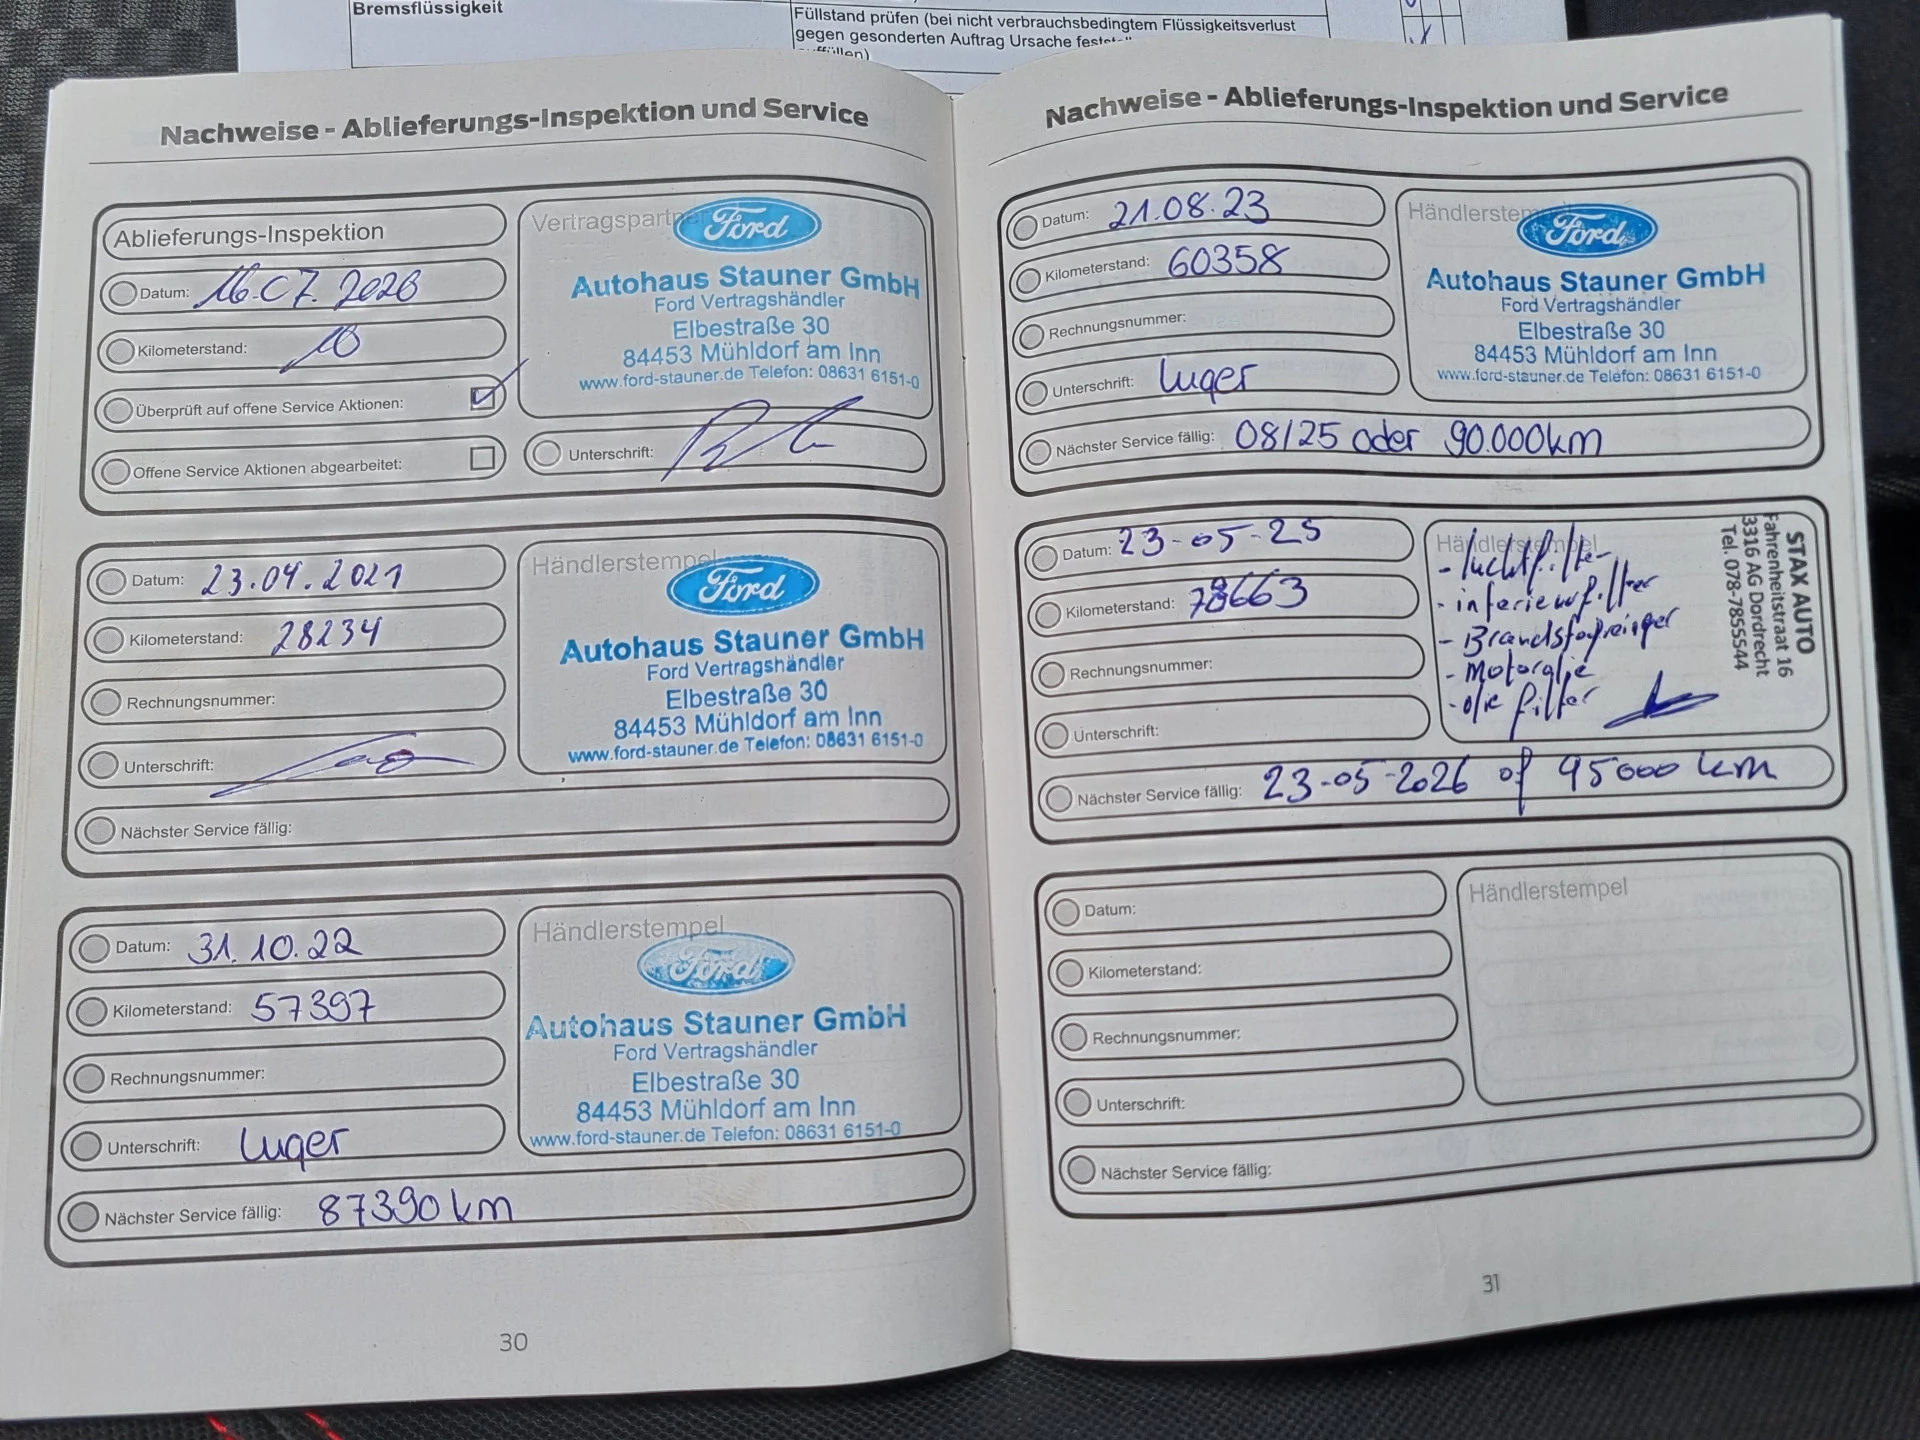 Bremsflüssigkeit
Füllstand prüfen (bei nicht verbrauchsbedingtem Flüssigkeitsverlust
gegen gesonderten Auftrag Ursache
Nachweise - Ablieferungs-Inspektion und Service
Ablieferungs-Inspektion
Datum: 16.07.2020
Kilometerstand: 10
Überprüft auf offene Service Aktionen:
Offene Service Aktionen abgearbeitet:
Ford
Autohaus Stauner GmbH
Ford Vertragshändler
Elbestraße 30
84453 Mühldorf am Inn
www.ford-stauner.de Telefon: 08631 6151-0
Unterschrift:
Datum: 23.04.2021
Kilometerstand: 28234
Rechnungsnummer:
Unterschrift:
Nächster Service fällig:
Händlerstempel
Ford
Autohaus Stauner GmbH
Ford Vertragshändler
Elbestraße 30
84453 Mühldorf am Inn
www.ford-stauner.de Telefon: 08631 6151-0
Datum: 31.10.22
Kilometerstand: 57397
Rechnungsnummer:
Unterschrift: Luger
Nächster Service fällig: 87390 km
Händlerstempel
Ford
Autohaus Stauner GmbH
Ford Vertragshändler
Elbestraße 30
84453 Mühldorf am Inn
www.ford-stauner.de Telefon: 08631 6151-0
30
Nachweise - Ablieferungs-Inspektion und Service
Datum: 21.08.23
Kilometerstand: 60358
Rechnungsnummer:
Unterschrift: Luger
Nächster Service fällig: 08/25 oder 90.000km
Ford
Autohaus Stauner GmbH
Ford Vertragshändler
Elbestraße 30
84453 Mühldorf am Inn
www.ford-stauner.de Telefon: 08631 6151-0
Datum: 23-05-25
Kilometerstand: 78663
Rechnungsnummer:
Unterschrift:
Nächster Service fällig: 23-05-2026 of 95000 km
Händlerstempel
- luchtfilter
- interieurfilter
- Brandstofreiniger
- Motorolie
- olie filter
STAX AUTO
Fahrenheitstraat 16
3316 AG Dordrecht
Tel. 078-7855544
Datum:
Kilometerstand:
Rechnungsnummer:
Unterschrift:
Nächster Service fällig:
Händlerstempel
31